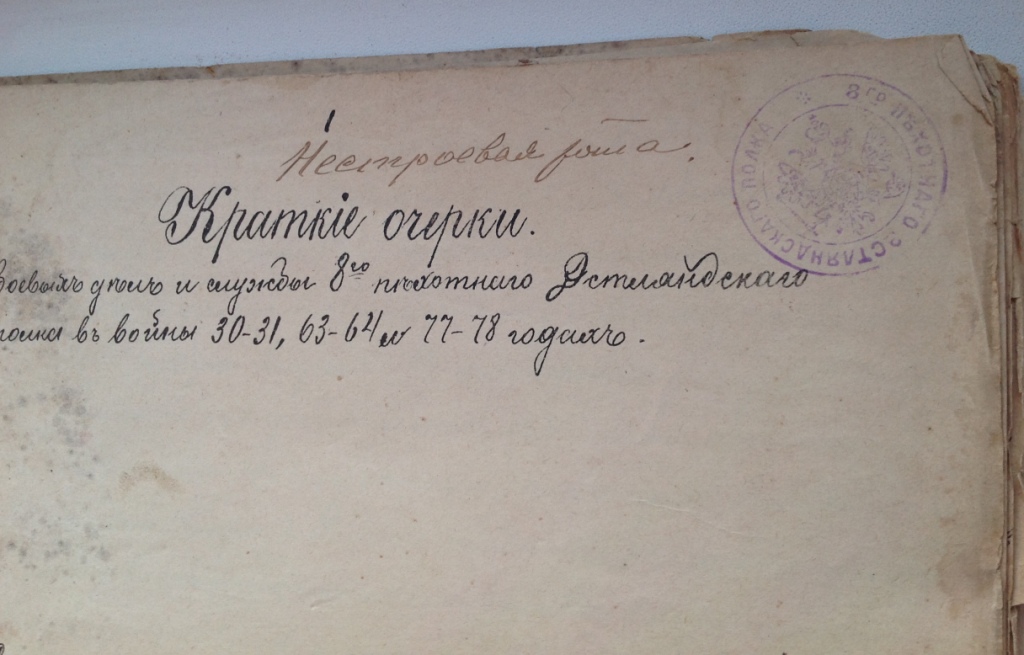 Нестроевая рота.
Краткіе очерки.
боевыхъ дѣлъ и службы 8го пѣхотнаго Эстляндскаго
полка въ войны 30-31, 63-64 и 77-78 годахъ.
8го ПѢХОТНАГО ЭСТЛЯНДСКАГО ПОЛКА *